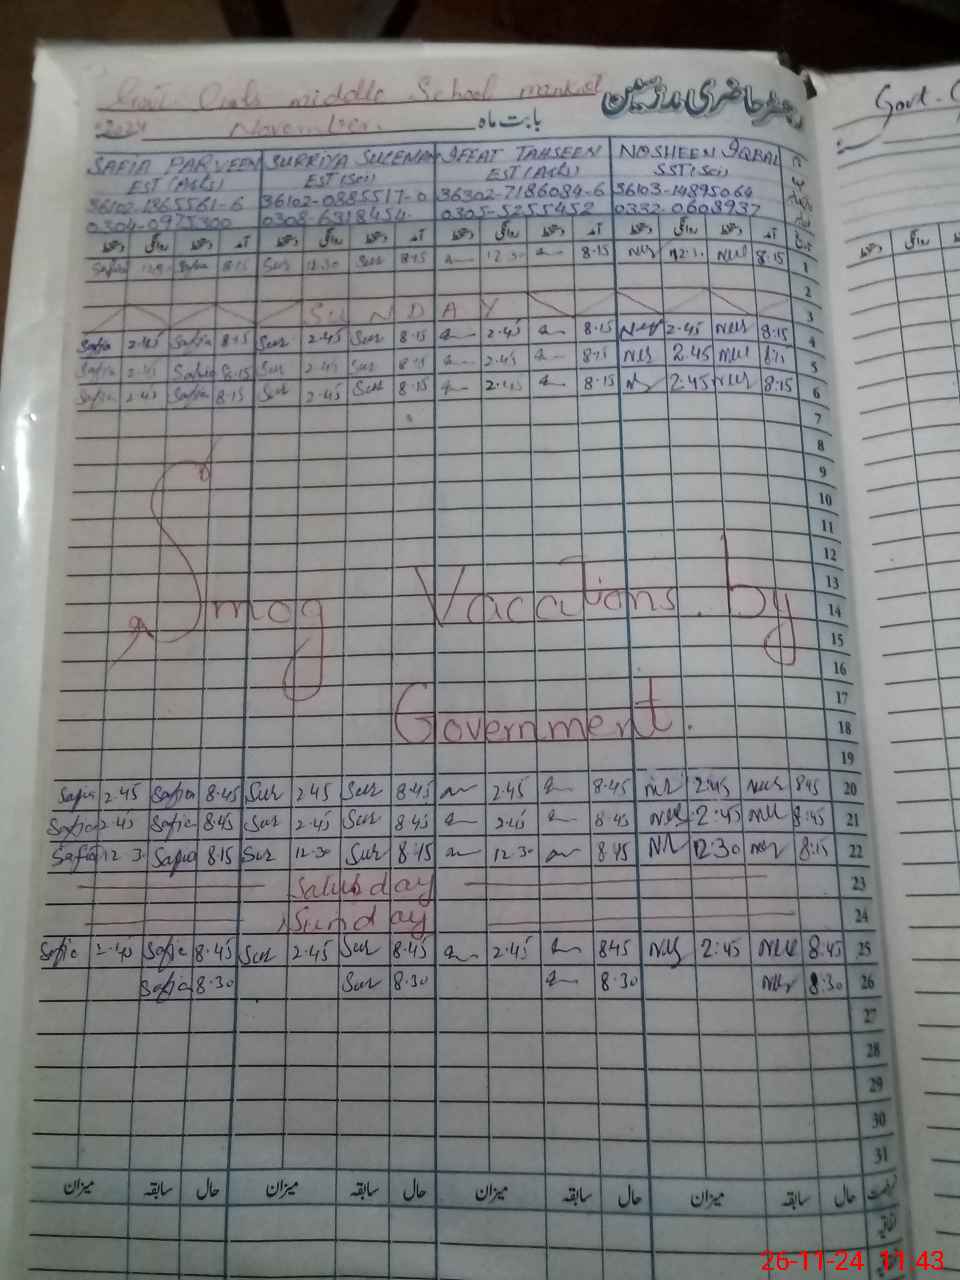 Govt. Girls middle School
رجسٹر حاضری مدرسین
2024 November. بابت ماہ
SAFIA PARVEEN SURRIYA SULEMAN IFFAT TAHSEEN NOSHEEN IQBAL
EST (Arts) EST (Sci) EST (Arts) SST (Sci)
36102-1365561-6 36102-0885517-0 36302-7186084-6 36103-14895064
0304-0975300 0308-6318454 0305-5255452 0332-0608937
دستخط روانگی دستخط آمد دستخط روانگی دستخط آمد دستخط روانگی دستخط آمد دستخط روانگی دستخط آمد تاریخ
Safia Safia 8.15 Sur 12.30 Sur 8.15 12.30 8.15 Nur 12.30 Nur 8.15 1
2
SUNDAY 3
Safia 2.45 Safia 8.15 Sur 2.45 Sur 8.15 2.45 8.15 Nur 2.45 Nur 8.15 4
Safia 2.45 Safia 8.15 Sur 2.45 Sur 8.15 2.45 8.15 Nur 2.45 Nur 8.15 5
Safia 2.45 Safia 8.15 Sur 2.45 Sur 8.15 2.45 8.15 2.45 Nur 8.15 6
7
8
9
10
11
12
13
Smog Vacations by 14
15
16
17
Government. 18
19
Safia 2.45 Safia 8.45 Sur 2.45 Sur 8.45 2.45 8.45 Nur 2:45 Nur 8.45 20
Safia 2.45 Safia 8.45 Sur 2.45 Sur 8.45 2.45 8.45 Nur 2:45 Nur 8.45 21
Safia 12.3 Safia 8.15 Sur 12.30 Sur 8.15 12.30 8.45 Nur 12.30 Nur 8:15 22
Saturday 23
Sunday 24
Safia 2.45 Safia 8.45 Sur 2.45 Sur 8.45 2.45 8.45 Nur 2:45 Nur 8.45 25
Safia 8.30 Sur 8.30 8.30 Nur 8:30 26
27
28
29
30
31
میزان سابقہ حال میزان سابقہ حال میزان سابقہ حال میزان سابقہ حال
اتفاقیہ
Govt.
دستخط روانگی دستخط
26-11-24 11:43